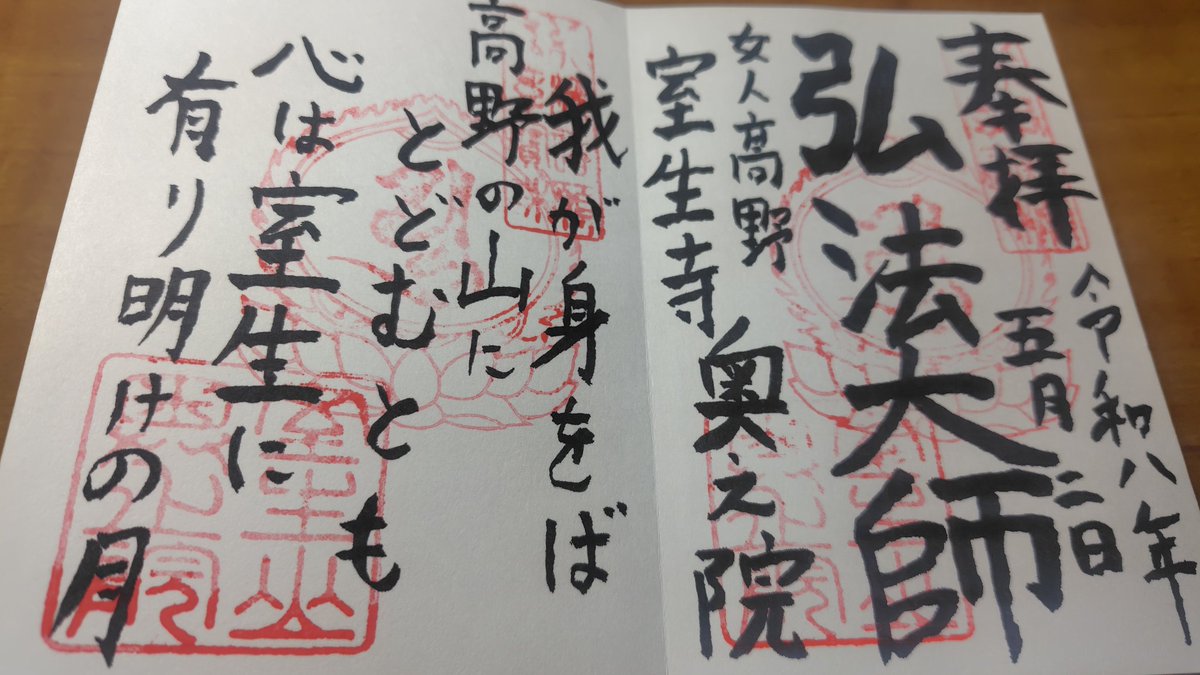 奉拝
令和八年
五月二日
弘法大師
女人高野
室生寺奥之院
我が身をば
高野の山に
とどむとも
心は室生に
有り明けの月